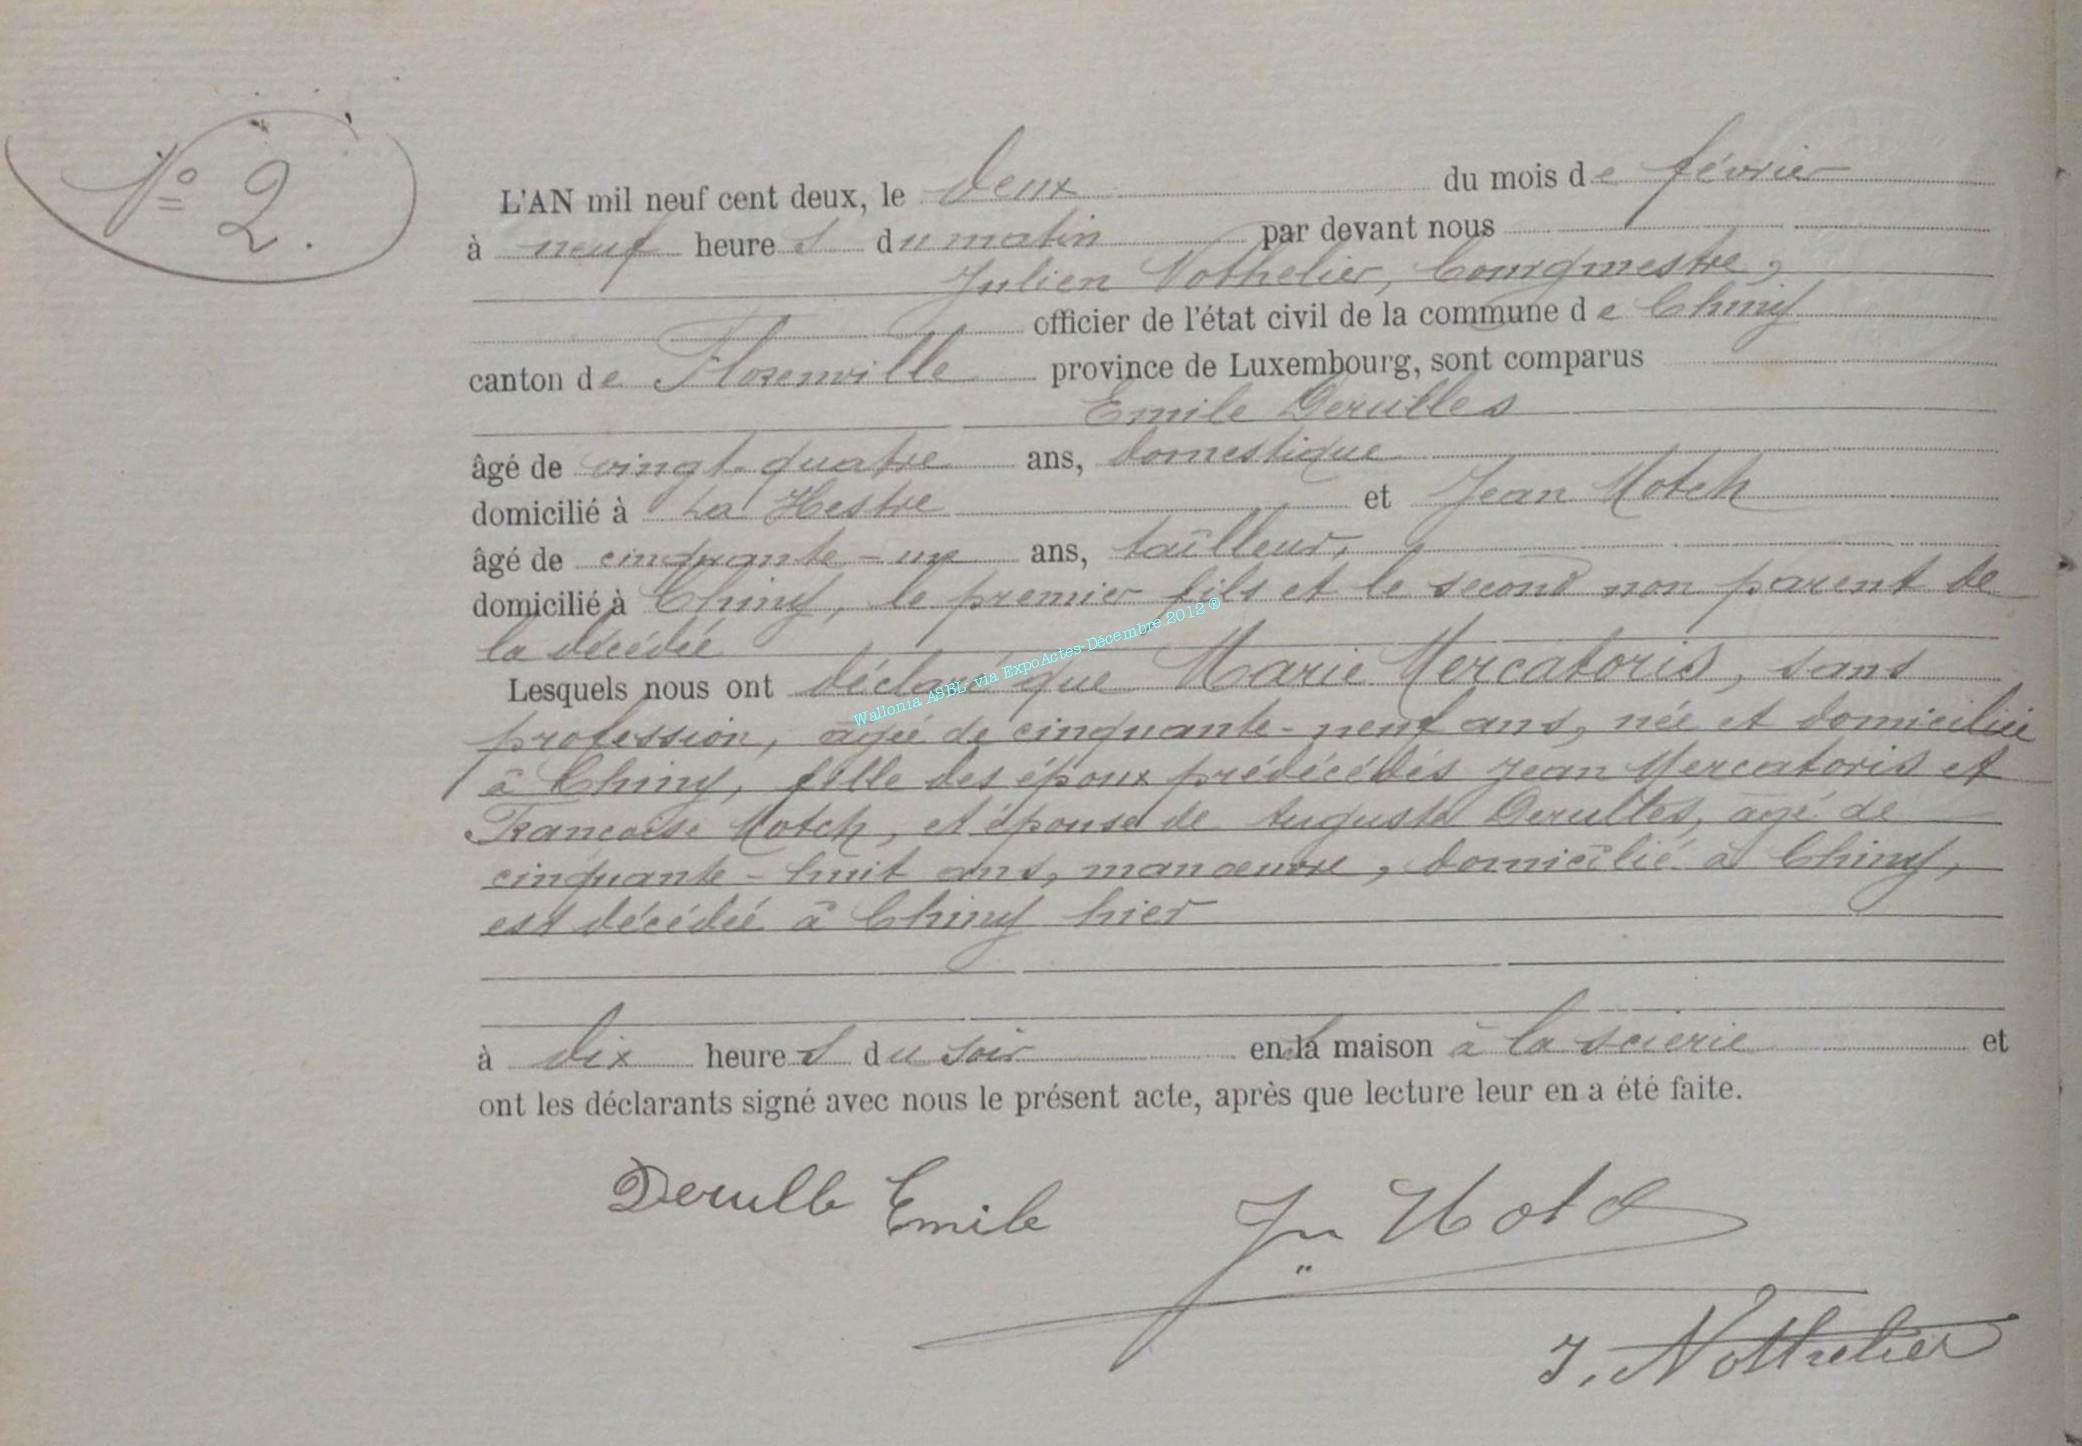 N° 2.
L'AN mil neuf cent deux, le deux du mois de février
à neuf heures du matin par devant nous
Julien Nothelier, bourgmestre,
officier de l'état civil de la commune de Chiny
canton de Florenville province de Luxembourg, sont comparus
Emile Derulles
âgé de vingt-quatre ans, domestique
domicilié à La Hestre et Jean Motch
âgé de cinquante-un ans, tailleur,
domicilié à Chiny, le premier fils et le second non parent de
la décédée
Lesquels nous ont déclaré que Marie Mercatoris, sans
profession, âgée de cinquante-neuf ans, née et domiciliée
à Chiny, fille des époux prédécédés Jean Mercatoris et
Francoise Motch, et épouse de Auguste Derulles, âgé de
cinquante-huit ans, manœuvre, domicilié à Chiny,
est décédée à Chiny hier
à dix heures du soir en la maison à la scierie et
ont les déclarants signé avec nous le présent acte, après que lecture leur en a été faite.
Derulle Emile Jn Motch
J. Nothelier
Wallonia ASBL- via ExpoActes-Décembre 2012 ®